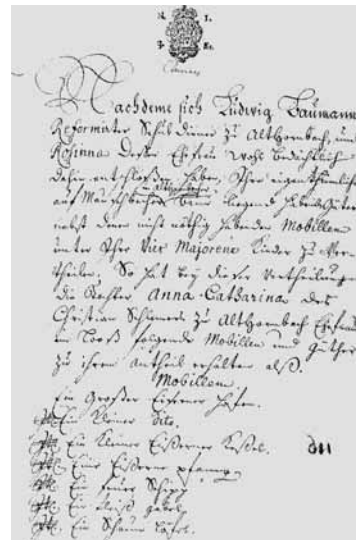 Nachdeme sich Ludwig Baumann
Reformirter Schuldiener zu Althornbach, und
Rosinna deßen Ehefrau wohl bedächtlich
dahin entschloßen haben, Ihre eigenthümliche
auf liegend habende Güter
nebst denen nicht nöthig habenden Mobilien
unter Ihre vier Majorene Kinder zu ver-
theilen, So hat bey dieser Vertheilung
die Tochter Anna Catharina des
Christian zu Althornbach Ehefrau
im Looß folgende Mobilien und Güther
zu ihrem Antheil erhalten alß.
Mobilien
Ein Großer Eiserner Hafen.
Ein Kleiner dito.
Ein Kleiner Eißerner Keßel.
Eine Eißerne pfanne
Ein feuer Schipp
Ein gabel
Ein